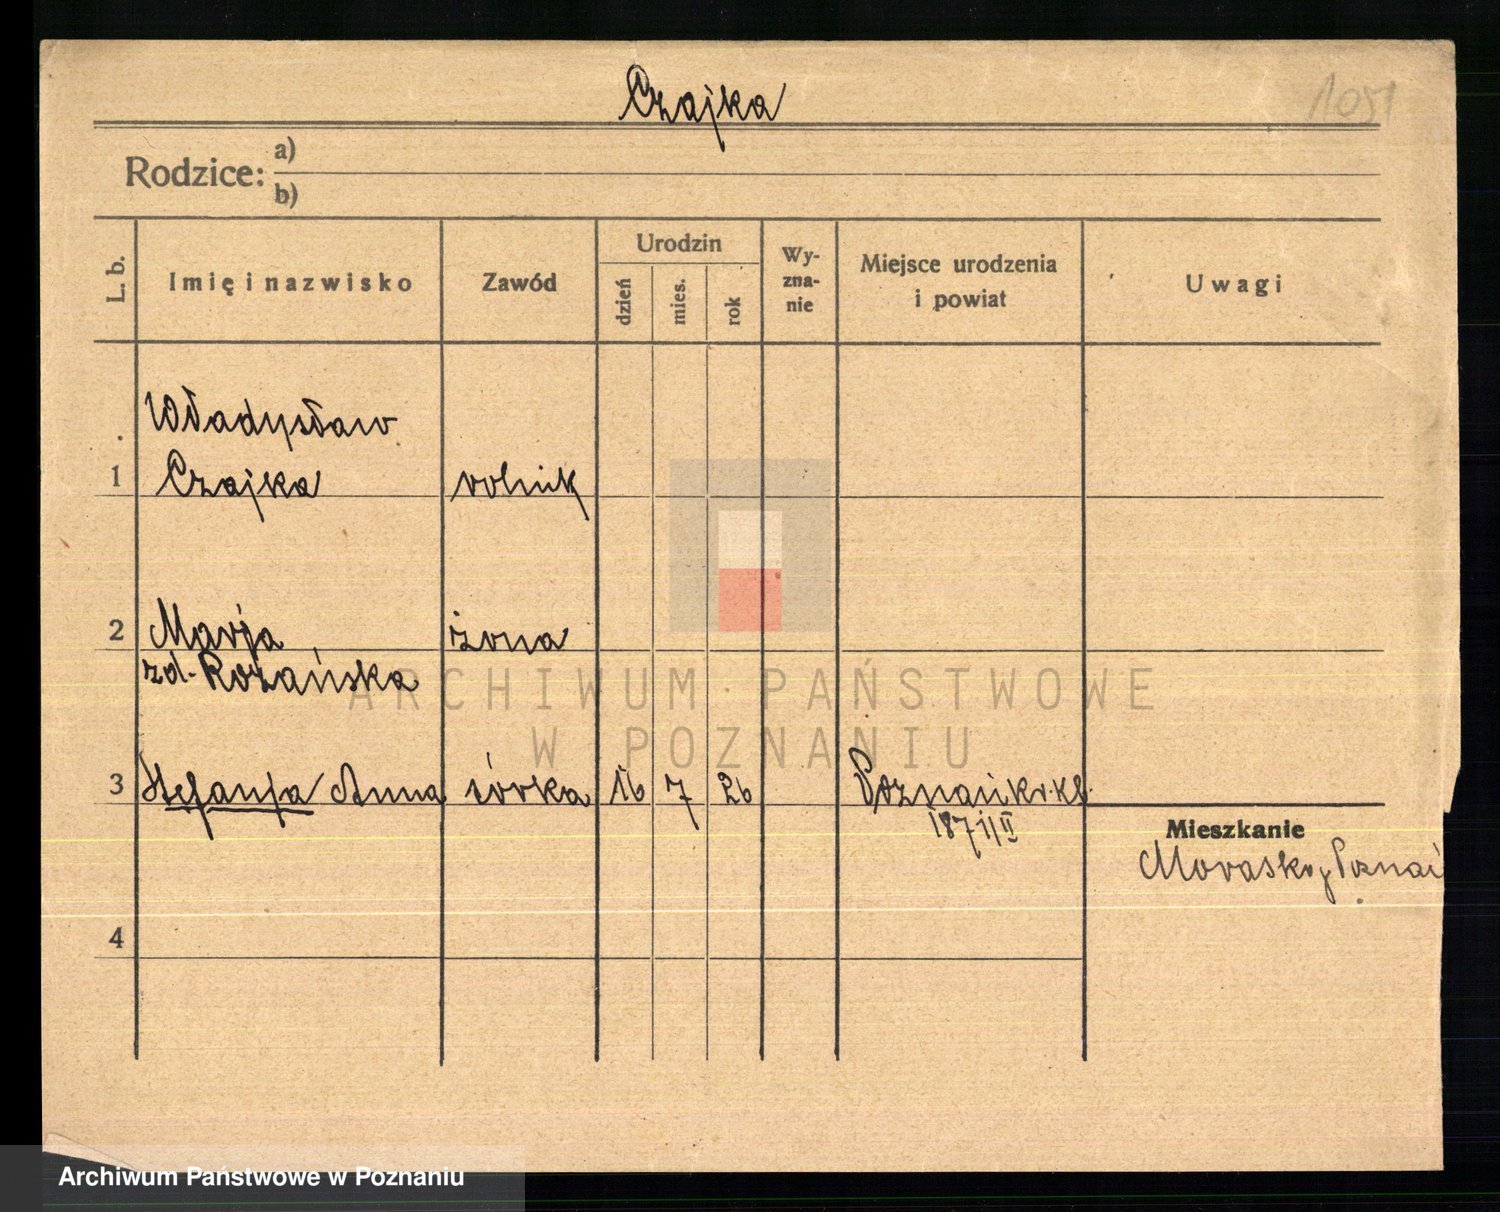 Czajka
1051
Rodzice: a)
b)
L. b.
Imię i nazwisko
Zawód
Urodzin
dzień
mies.
rok
Wy-
zna-
nie
Miejsce urodzenia
i powiat
Uwagi
Władysław
1 Czajka rolnik
2 Marja żona
zd. Rożańska
ARCHIWUM PAŃSTWOWE
W POZNANIU
3 Stefanja Anna córka 16 7 26 Poznań
1871/II
Mieszkanie
Morasko p Poznań
4
Archiwum Państwowe w Poznaniu